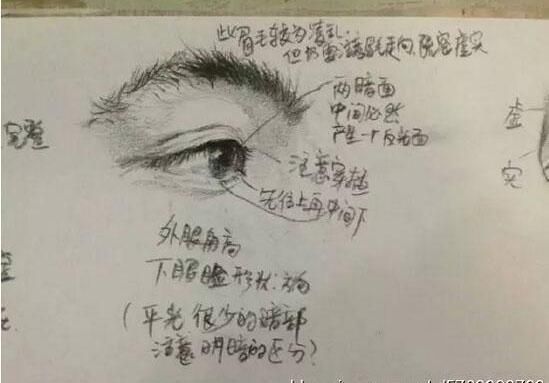 此眉毛较为凌乱
但仍要注意毛走向、疏密虚实
两暗面
中间必然
产生一个反光面
完整
注意穿插
先往上再中间下
虚
实
外眼角高
下眼睑形状:方
(平光 很少的暗部
注意明暗的区分?